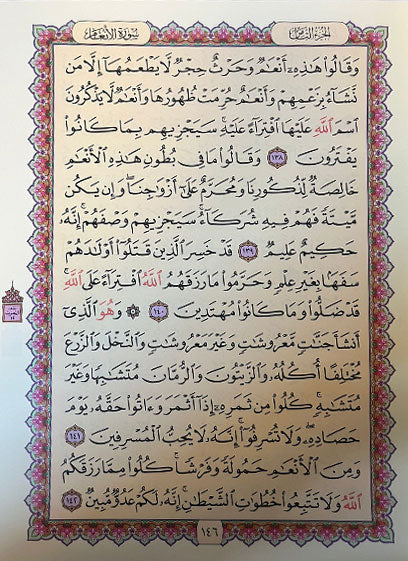 سورة الأنعام
الجزء الثامن
وَقَالُوا۟ هَـٰذِهِۦٓ أَنْعَـٰمٌ وَحَرْثٌ حِجْرٌ لَّا يَطْعَمُهَآ إِلَّا مَن
نَّشَآءُ بِزَعْمِهِمْ وَأَنْعَـٰمٌ حُرِّمَتْ ظُهُورُهَا وَأَنْعَـٰمٌ لَّا يَذْكُرُونَ
ٱسْمَ ٱللَّهِ عَلَيْهَا ٱفْتِرَآءً عَلَيْهِ ۚ سَيَجْزِيهِم بِمَا كَانُوا۟
يَفْتَرُونَ ١٣٨ وَقَالُوا۟ مَا فِى بُطُونِ هَـٰذِهِ ٱلْأَنْعَـٰمِ
خَالِصَةٌ لِّذُكُورِنَا وَمُحَرَّمٌ عَلَىٰٓ أَزْوَٰجِنَا ۖ وَإِن يَكُن
مَّيْتَةً فَهُمْ فِيهِ شُرَكَآءُ ۚ سَيَجْزِيهِمْ وَصْفَهُمْ ۚ إِنَّهُۥ
حَكِيمٌ عَلِيمٌ ١٣٩ قَدْ خَسِرَ ٱلَّذِينَ قَتَلُوٓا۟ أَوْلَـٰدَهُمْ
سَفَهًۢا بِغَيْرِ عِلْمٍ وَحَرَّمُوا۟ مَا رَزَقَهُمُ ٱللَّهُ ٱفْتِرَآءً عَلَى ٱللَّهِ ۚ
قَدْ ضَلُّوا۟ وَمَا كَانُوا۟ مُهْتَدِينَ ١٤٠ ۞ وَهُوَ ٱلَّذِىٓ
أَنشَأَ جَنَّـٰتٍ مَّعْرُوشَـٰتٍ وَغَيْرَ مَعْرُوشَـٰتٍ وَٱلنَّخْلَ وَٱلزَّرْعَ
مُخْتَلِفًا أُكُلُهُۥ وَٱلزَّيْتُونَ وَٱلرُّمَّانَ مُتَشَـٰبِهًا وَغَيْرَ
مُتَشَـٰبِهٍ ۚ كُلُوا۟ مِن ثَمَرِهِۦٓ إِذَآ أَثْمَرَ وَءَاتُوا۟ حَقَّهُۥ يَوْمَ
حَصَادِهِۦ ۖ وَلَا تُسْرِفُوٓا۟ ۚ إِنَّهُۥ لَا يُحِبُّ ٱلْمُسْرِفِينَ ١٤١
وَمِنَ ٱلْأَنْعَـٰمِ حَمُولَةً وَفَرْشًا ۚ كُلُوا۟ مِمَّا رَزَقَكُمُ
ٱللَّهُ وَلَا تَتَّبِعُوا۟ خُطُوَٰتِ ٱلشَّيْطَـٰنِ ۚ إِنَّهُۥ لَكُمْ عَدُوٌّ مُّبِينٌ ١٤٢
١٤٦